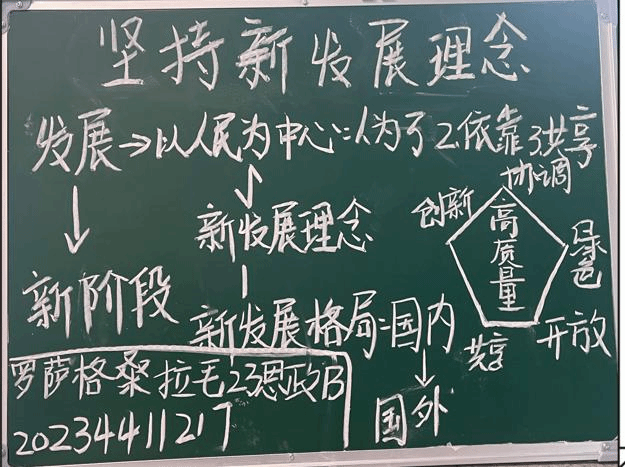 坚持新发展理念
发展→以人民为中心:1为了2.依靠3共享
新发展理念
新阶段
新发展格局:国内
国外
协调
创新
高质量
绿色
开放
共享
罗萨格桑拉毛23思政B
20234411217